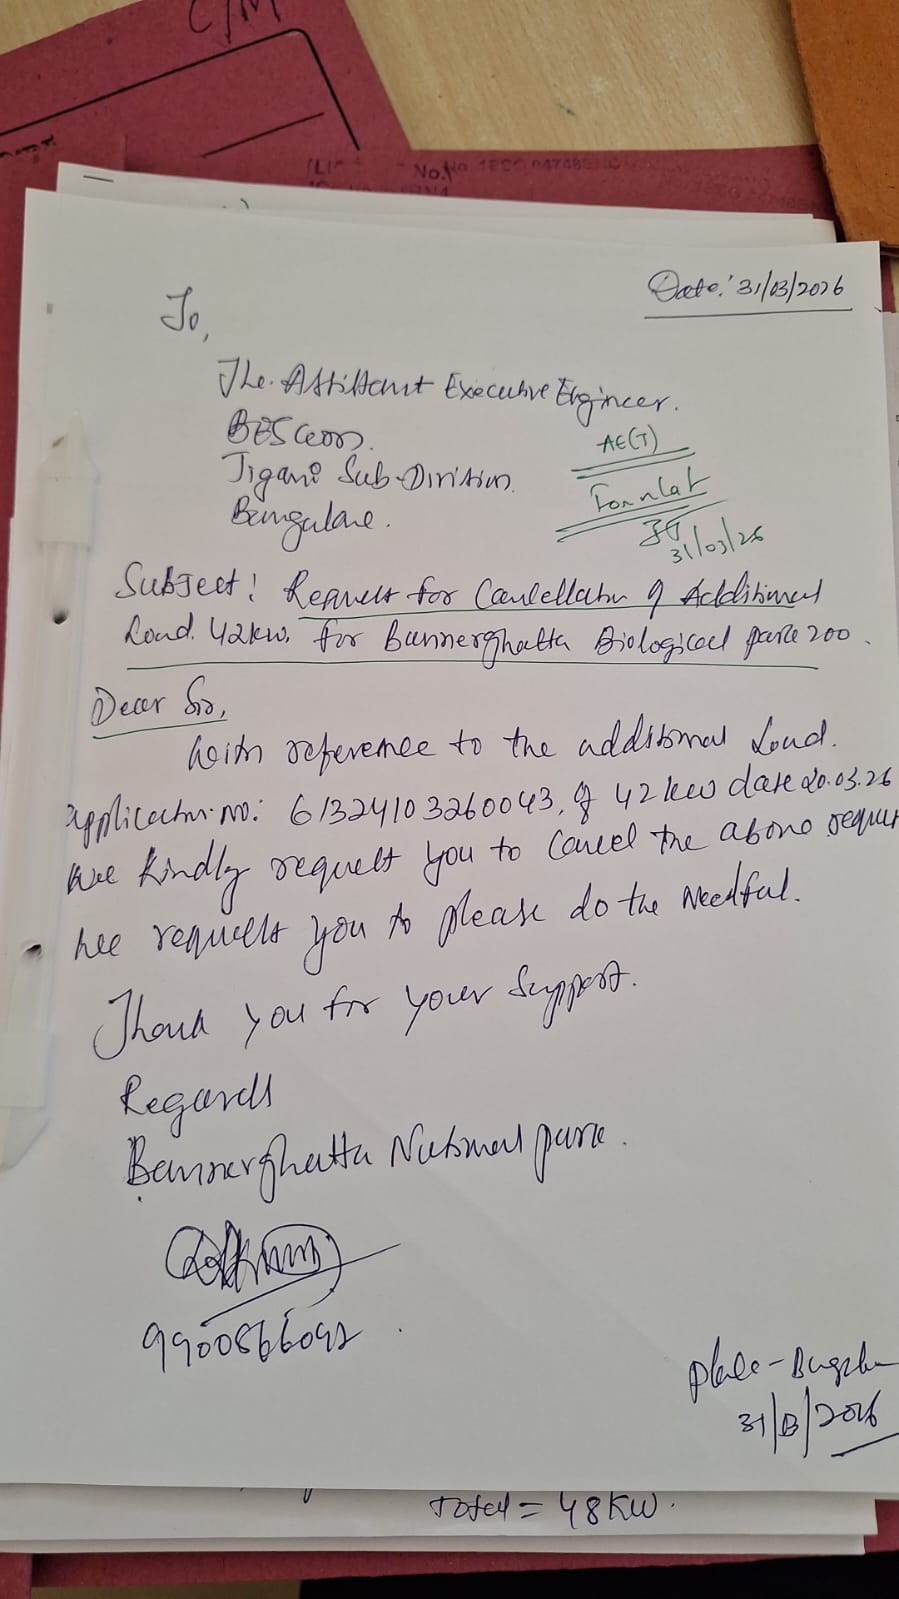 C/M
No.
Date: 31/03/2026
To,
The. Assistant Executive Engineer.
BESCOM.
Jigani Sub-Division.
Bangalore.
AE(T)
31/03/26
Subject: Request for Cancellation of Additional
Load. 42kw. for Bannerghatta Biological park zoo.
Dear Sir,
With reference to the additional Load.
application no: 61324103260043, of 42 kw date 20.03.26
We kindly request you to cancel the above request
We requests you to please do the Needful.
Thank you for your Support.
Regards
Bannerghatta National park.
9900866092
Place - Bngalo
31/03/2026
Total = 48 KW.